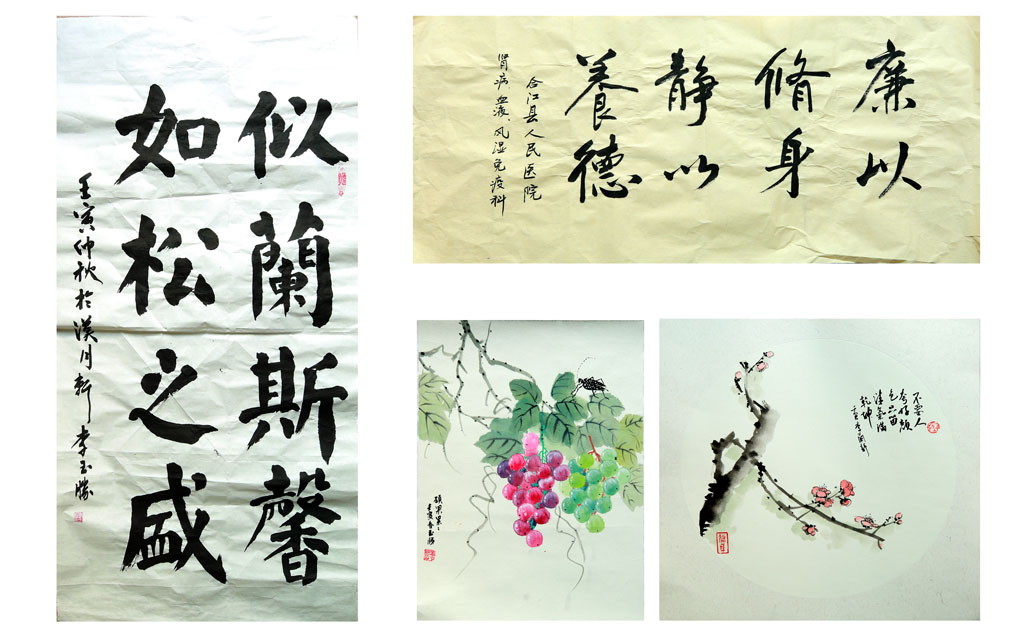 似蘭斯馨
如松之盛
壬寅仲秋於漢川軒李玉勝
廉以
脩身
靜以
養德
合江县人民医院
肾病血液、风湿免疫科
硕果累々
不要人
夸好颜
色只留
清气满
乾坤